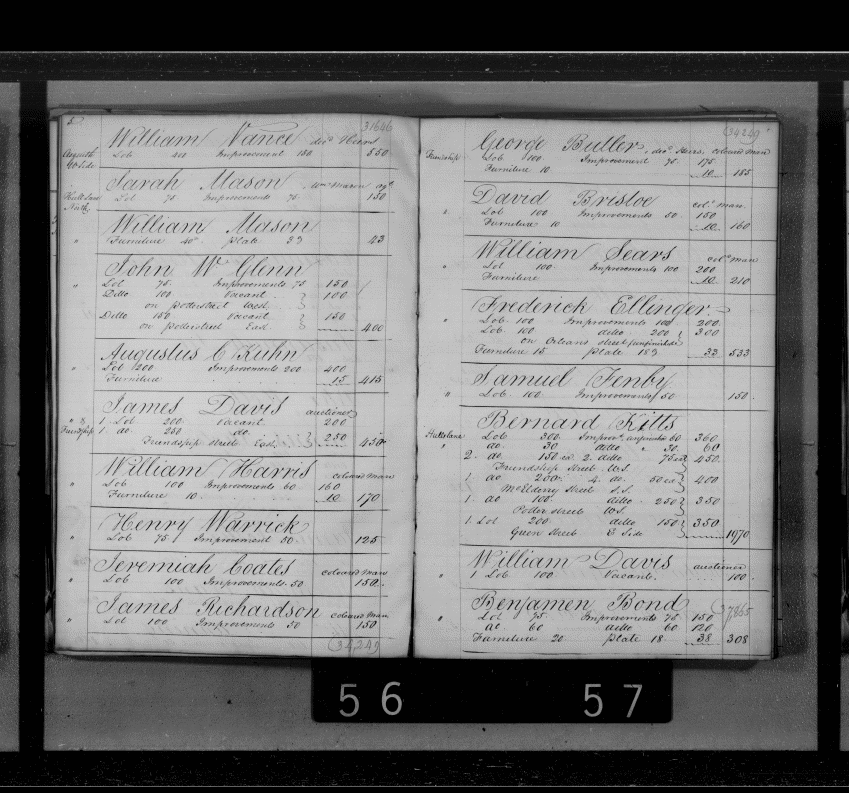 31646
William Vance dec'd Heirs
Lot 410 Improvement 150 550
Sarah Mason Wm Mason agt
Lot 75 Improvements 75 150
William Mason
" Furniture 40 plate 33 43
John Mc Glenn
" Lot 75 Improvements 75 150
Ditto 100 Vacant 100
on poderstreet West
Ditto 150 Vacant 150
on poderstreet East 400
Augustus C Kuhn
" Lot 200 Improvements 200 400
Furniture 15 415
James Davis auctioner
1 Lot 200 Vacant 200
Friendship 1 do 250 do
Friendship street East 250 450
William Harris coloured man
" Lot 100 Improvements 60 160
Furniture 10 10 170
Henry Warrick
" Lot 75 Improvement 50 125
Jeremiah Coates coloured man
" Lot 100 Improvements 50 150
James Richardson coloured man
" Lot 100 Improvements 50 150
34,249
34249
George Butler dec'd Heirs, coloured man
Friendship Lot 100 Improvement 75 175
Furniture 10 10 185
David Bristoe col'd man
" Lot 100 Improvements 50 150
Furniture 10 10 160
William Sears col'd man
" Lot 100 Improvements 100 200
Furniture 10 210
Frederick Ellinger
" Lot 100 Improvements 100 200
Lot 100 ditto 200 300
on Orleans street unfinished
Furniture 15 plate 183 33 533
Samuel Fenby
" Lot 100 Improvements 50 150
Bernard Kitts
Hullslane Lot 300 Improv'ts unfinished 60 360
" do 30 ditto " 30 60
2 do 150 ea 2 ditto 75 ea 450
Friendship Street W.S.
1 do 250 4 do 50 ea 400
McElderry Street S.S.
1 do 100 ditto 250 350
Poder street W.S.
1 Lot 200 ditto 150 350
Green Street E Side 1970
William Davis auctioner
" 1 Lot 100 Vacant 100
Benjamen Bond 37865
" Lot 75 Improvements 75 150
do 60 ditto 60 120
Furniture 20 plate 18 38 308
56 57